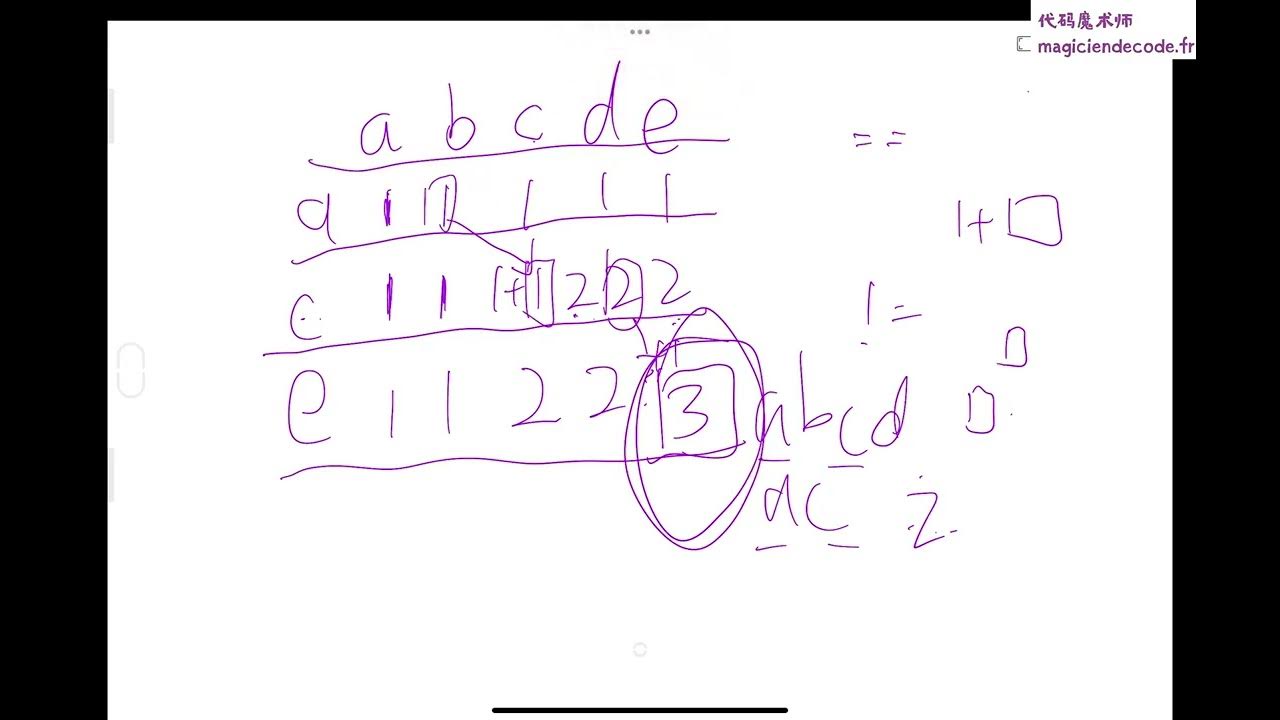 代码魔术师
magiciendecode.fr
a b c d e
= =
a 1 1 1 1 1
1+
c 1 1 1+1 2 2 2
! =
e 1 1 2 2 3
a b c d
a c 2